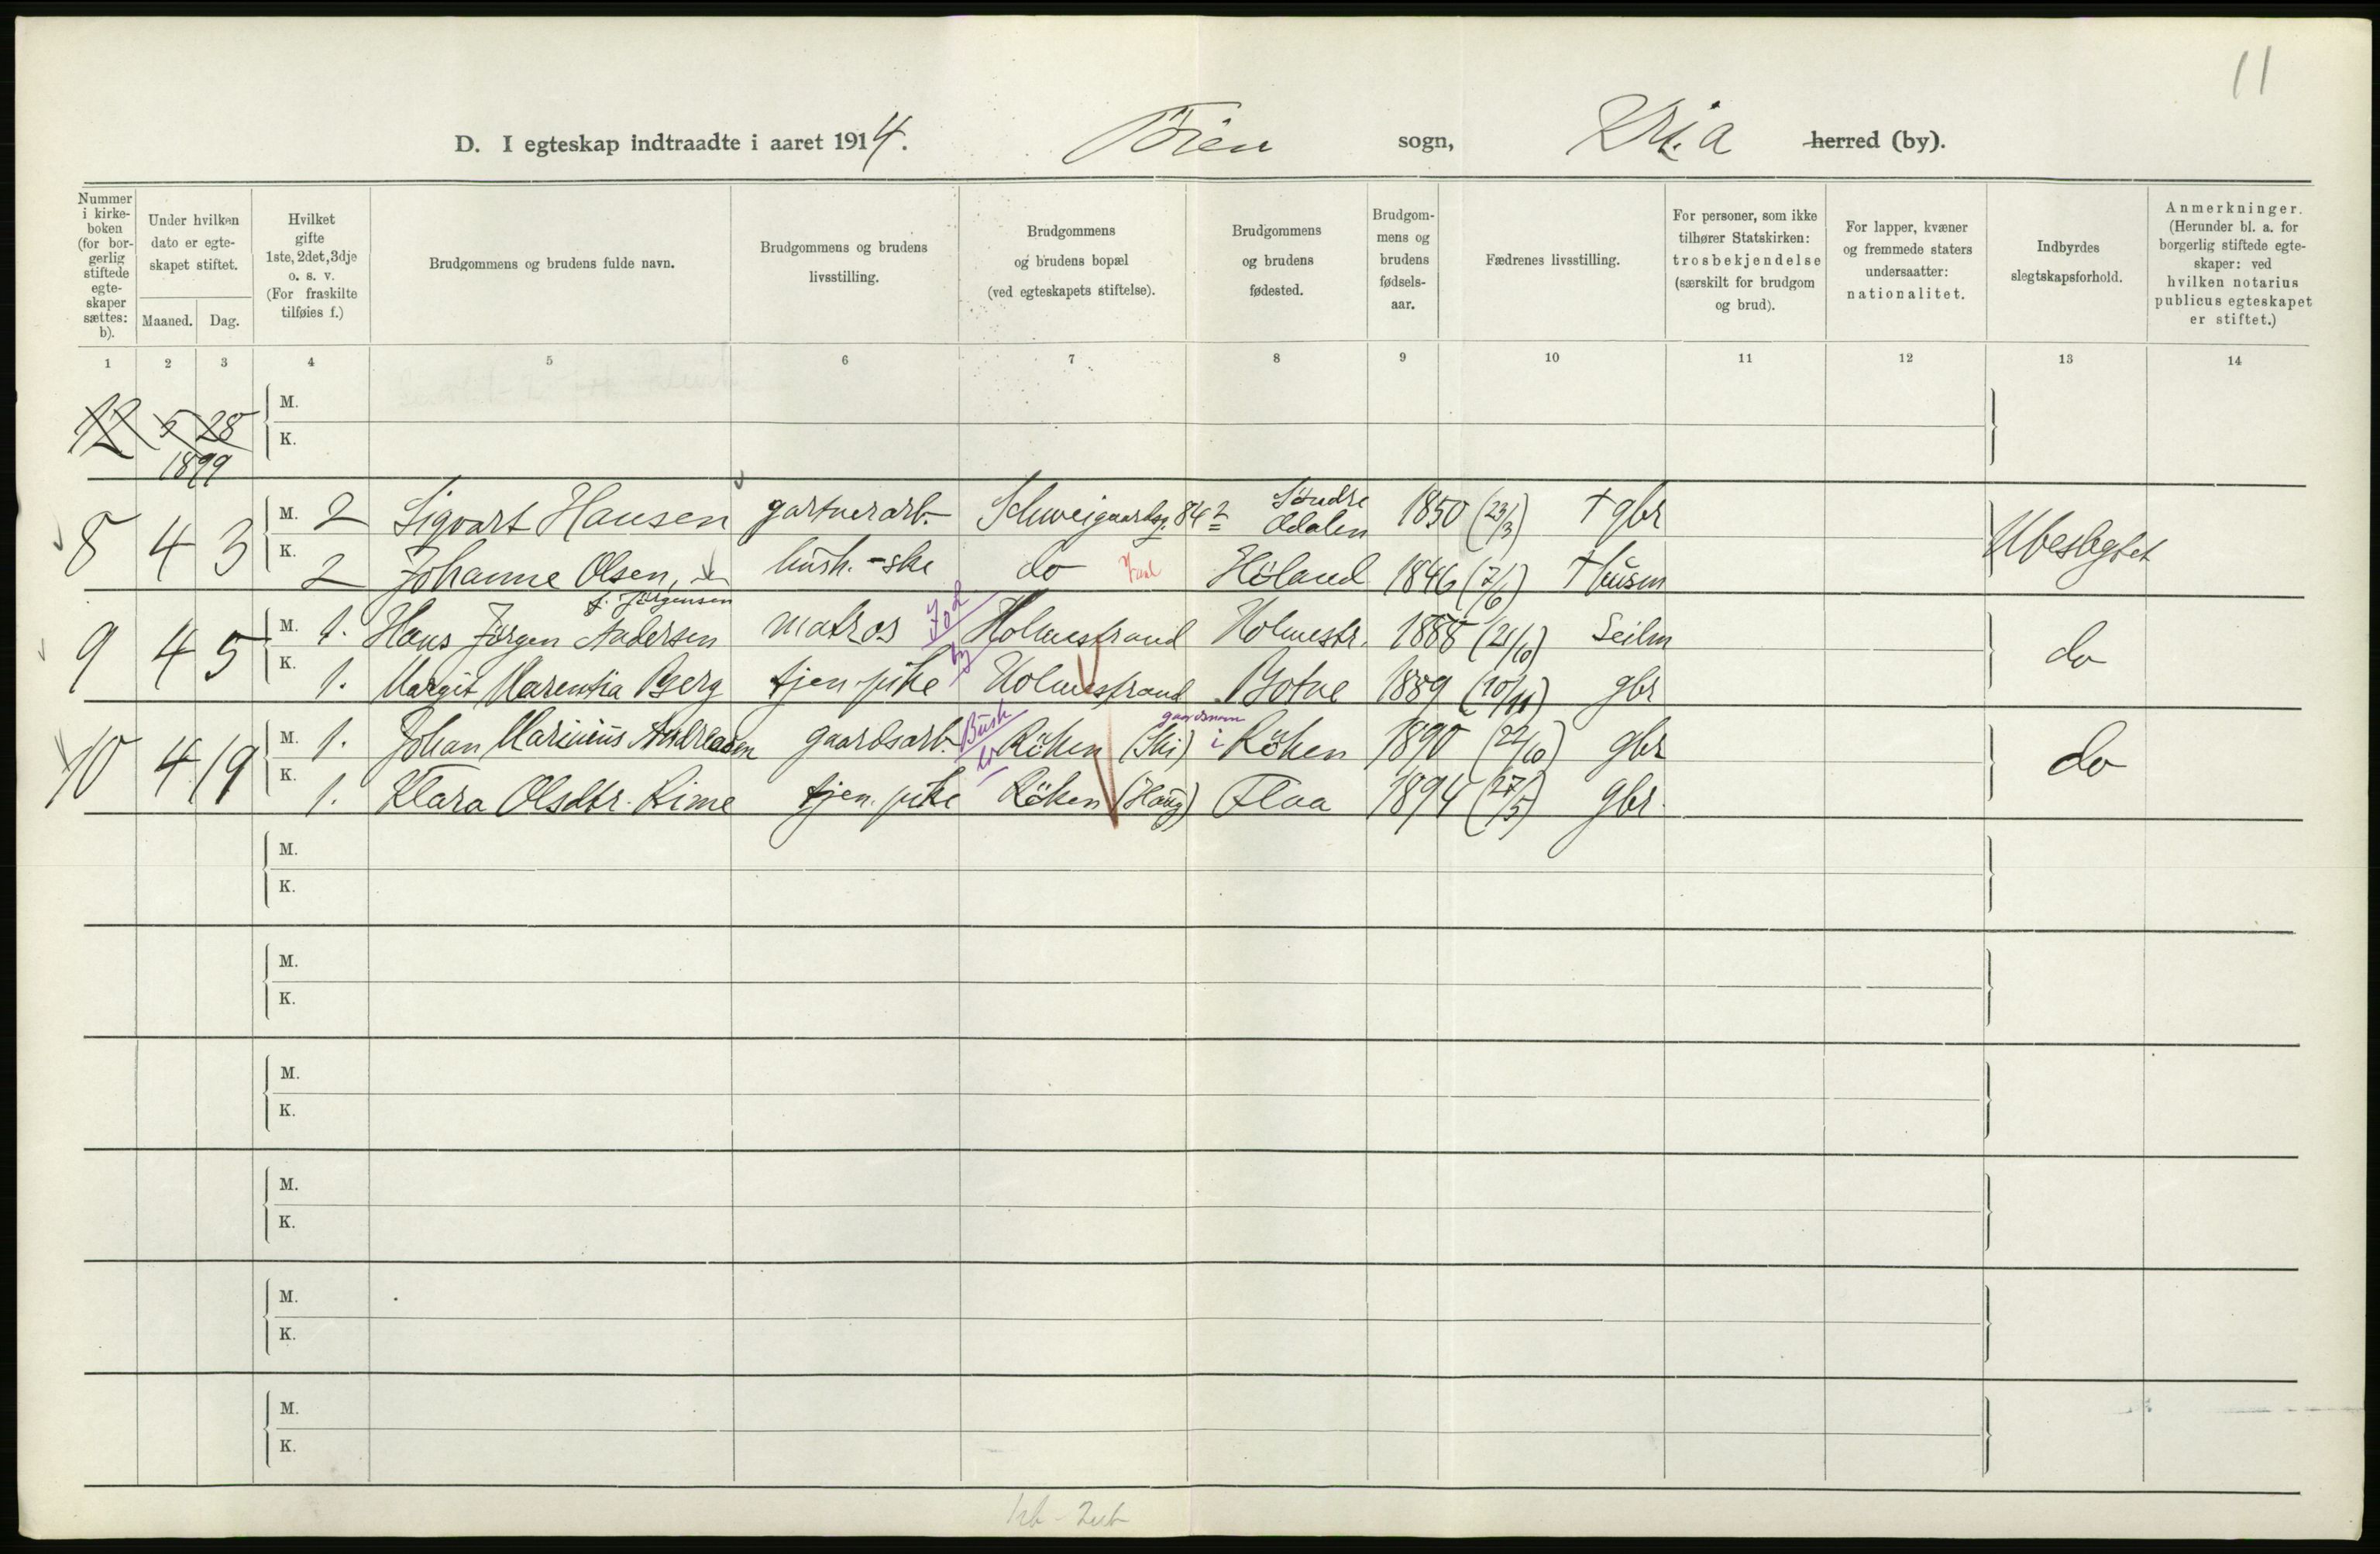 11
D. I egteskap indtraadte i aaret 1914. Töien sogn, Kr.a herred (by).
Nummer i kirkeboken (for borgerlig stiftede egteskaper sættes: b).
Under hvilken dato er egteskapet stiftet.
Maaned. Dag.
Hvilket gifte 1ste, 2det, 3dje o. s. v. (For fraskilte tilføies f.)
Brudgommens og brudens fulde navn.
Brudgommens og brudens livsstilling.
Brudgommens og brudens bopæl (ved egteskapets stiftelse).
Brudgommens og brudens fødested.
Brudgommens og brudens fødselsaar.
Fædrenes livsstilling.
For personer, som ikke tilhører Statskirken: trosbekjendelse (særskilt for brudgom og brud).
For lapper, kvæner og fremmede staters undersaatter: nationalitet.
Indbyrdes slegtskapsforhold.
Anmerkninger. (Herunder bl. a. for borgerlig stiftede egteskaper: ved hvilken notarius publicus egteskapet er stiftet.)
1 2 3 4 5 6 7 8 9 10 11 12 13 14
12 5 28 M.
K.
1899
8 4 3 M. 2 Sigvart Hansen gartnerarb. Schweigaardsg. 84² Söndre Odalen 1850 (23/3) † gbr Ubeslegtet
K. 2 Johanne Olsen, f. Jörgensen hush.-ske do Höland 1846 (7/6) † husm
9 4 5 M. 1. Hans Jörgen Andersen matros Holmestrand Holmestr. 1888 (21/10) Seilm do
K. 1. Margit Marentia Berg tjen. pike Holmestrand Botne 1889 (10/11) gbr
10 4 19 M. 1. Johan Marinius Andreasen gaardsarb. Busk Röken (Ski) gaardsnavn i Röken 1890 (22/10) gbr do
K. 1. Klara Olsdtr. Rime tjen. pike Röken (Haug) Flaa 1894 (27/5) gbr.
M.
K.
M.
K.
M.
K.
M.
K.
M.
K.
M.
K.